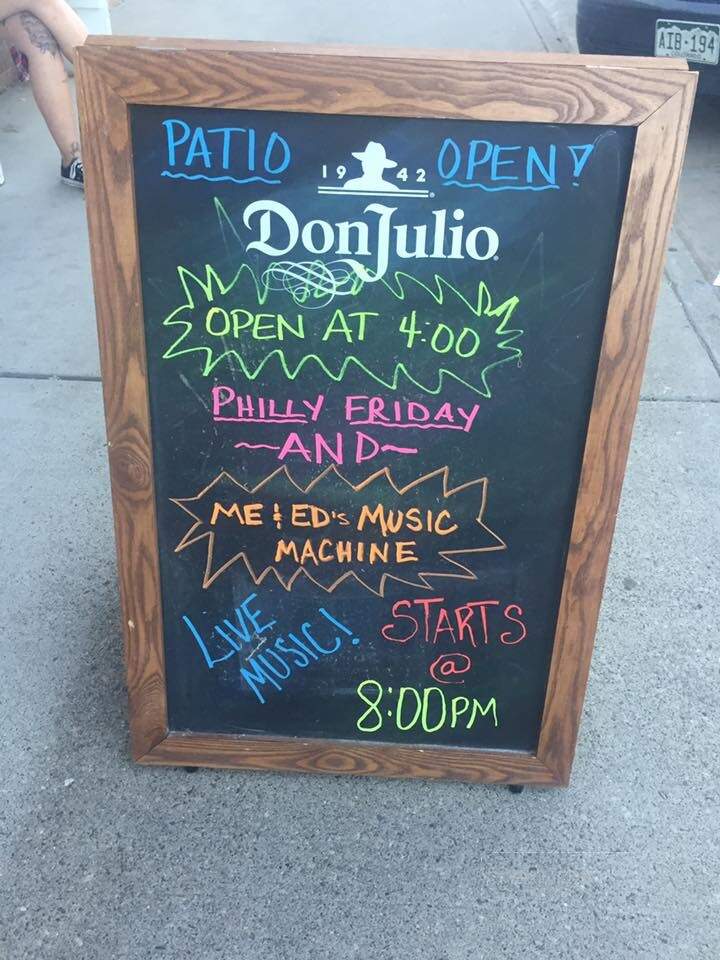 AIB-194
PATIO OPEN!
1942
Don Julio
OPEN AT 4:00
PHILLY FRIDAY
~AND~
ME & ED'S MUSIC
MACHINE
LIVE
MUSIC!
STARTS
@
8:00PM